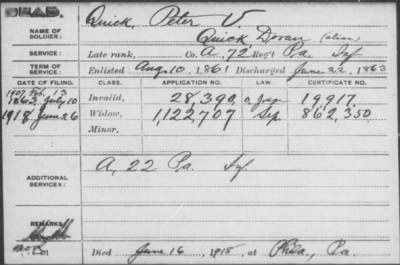 DEAD.
NAME OF SOLDIER: Quick, Peter V.
Quick, Doran (alias)
SERVICE: Late rank, Co. A, 72 Reg't Pa. Inf
TERM OF SERVICE: Enlisted Aug. 10, 1861 Discharged June 22, 1863
DATE OF FILING. CLASS. APPLICATION NO. LAW. CERTIFICATE NO.
1907 Feb. 13
1863 July 10 Invalid, 28,390 19,917
1918 June 26 Widow, 1,122,707 Sep. 862,350
Minor,
ADDITIONAL SERVICES: A, 22 Pa. Inf.
REMARKS:
Died June 16, 1918, at Phila., Pa.